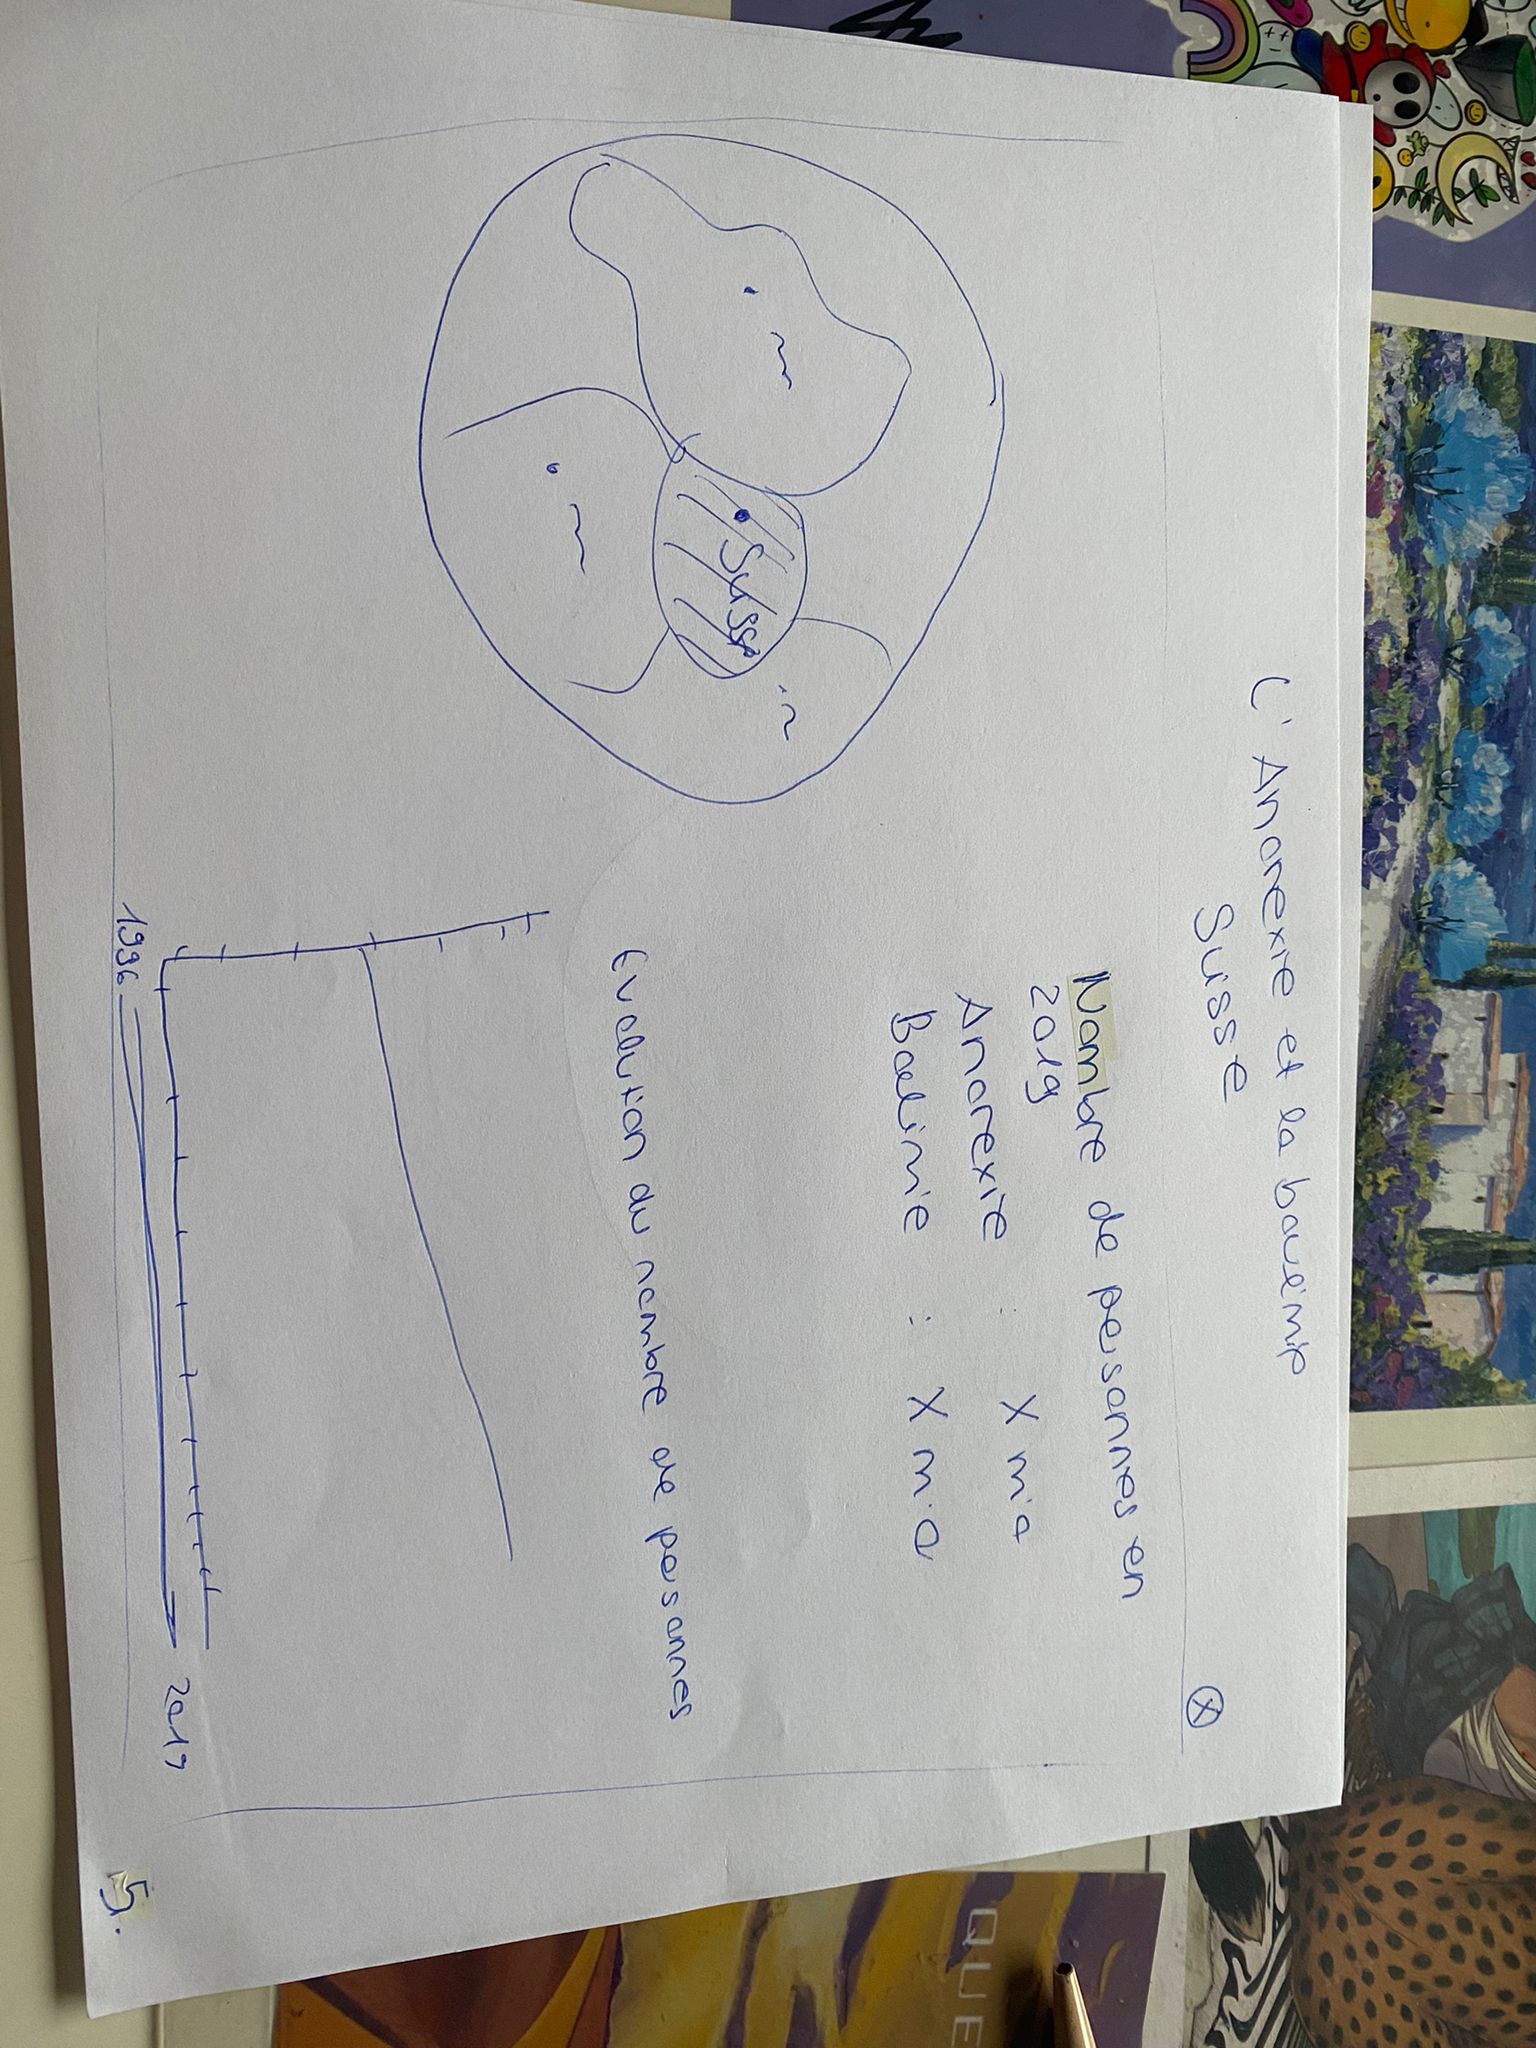 L'Anorexie et la boulimie
Suisse
Nombre de personnes en
2019
Anorexie : X mio
Boulimie : X mio
Suisse
Evolution du nombre de personnes
1996
2019
5.
QUE